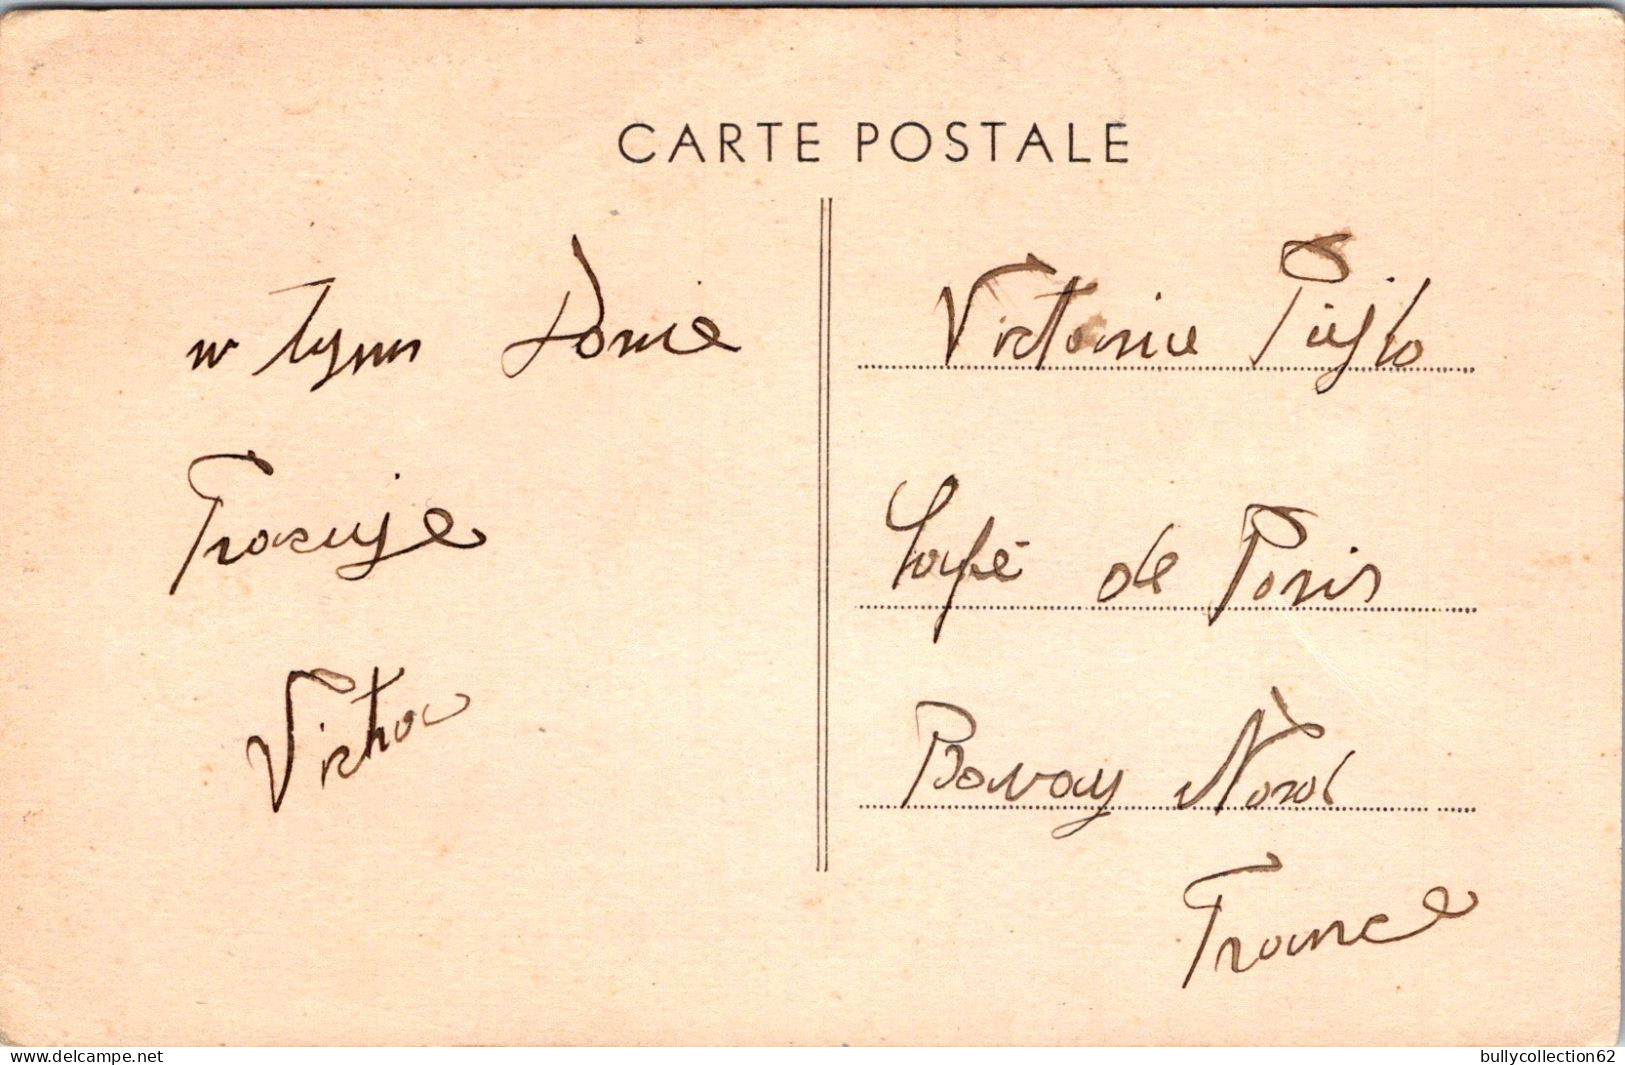 CARTE POSTALE
w tym Domie
Pracuje
Victor
Victorine
Café de Paris
Bavay Nord
France
delcampe.net
bullycollection62